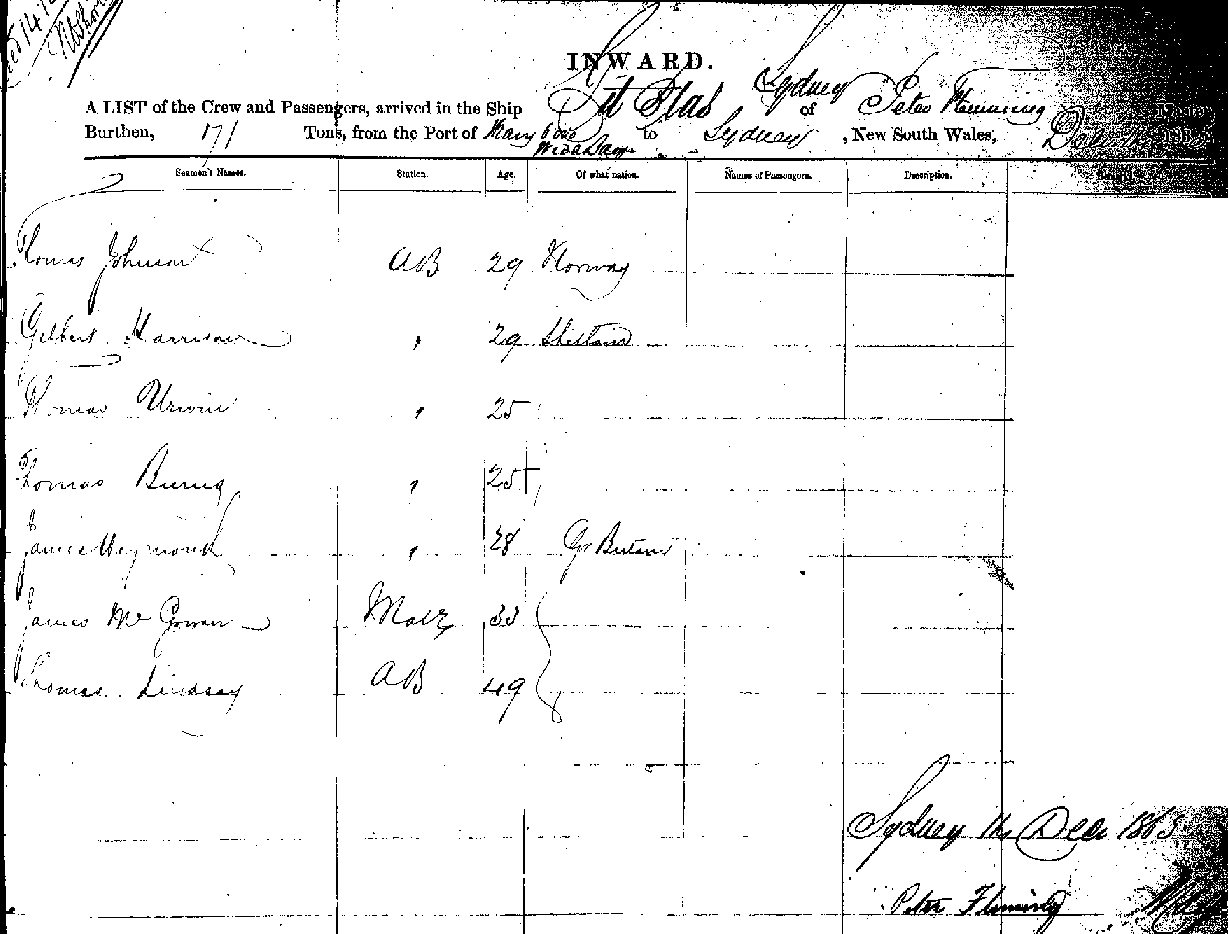 INWARD.
A LIST of the Crew and Passengers, arrived in the Ship Sydney of Peter Flemming
Burthen, 171 Tons, from the Port of to Sydney, New South Wales, Dec
Seamen's Names. Station. Age. Of what nation. Names of Passengers. Description.
Thomas Johnson AB 29 Norway
Gilbert Harrison " 29 Shetland
Thomas Urwin " 25 "
Thomas " 25 "
James " 28 Gt Britain
James McGowan Mate 33
Thomas Lindsay AB 49
Sydney 14 Dec 1863
Peter Fleming